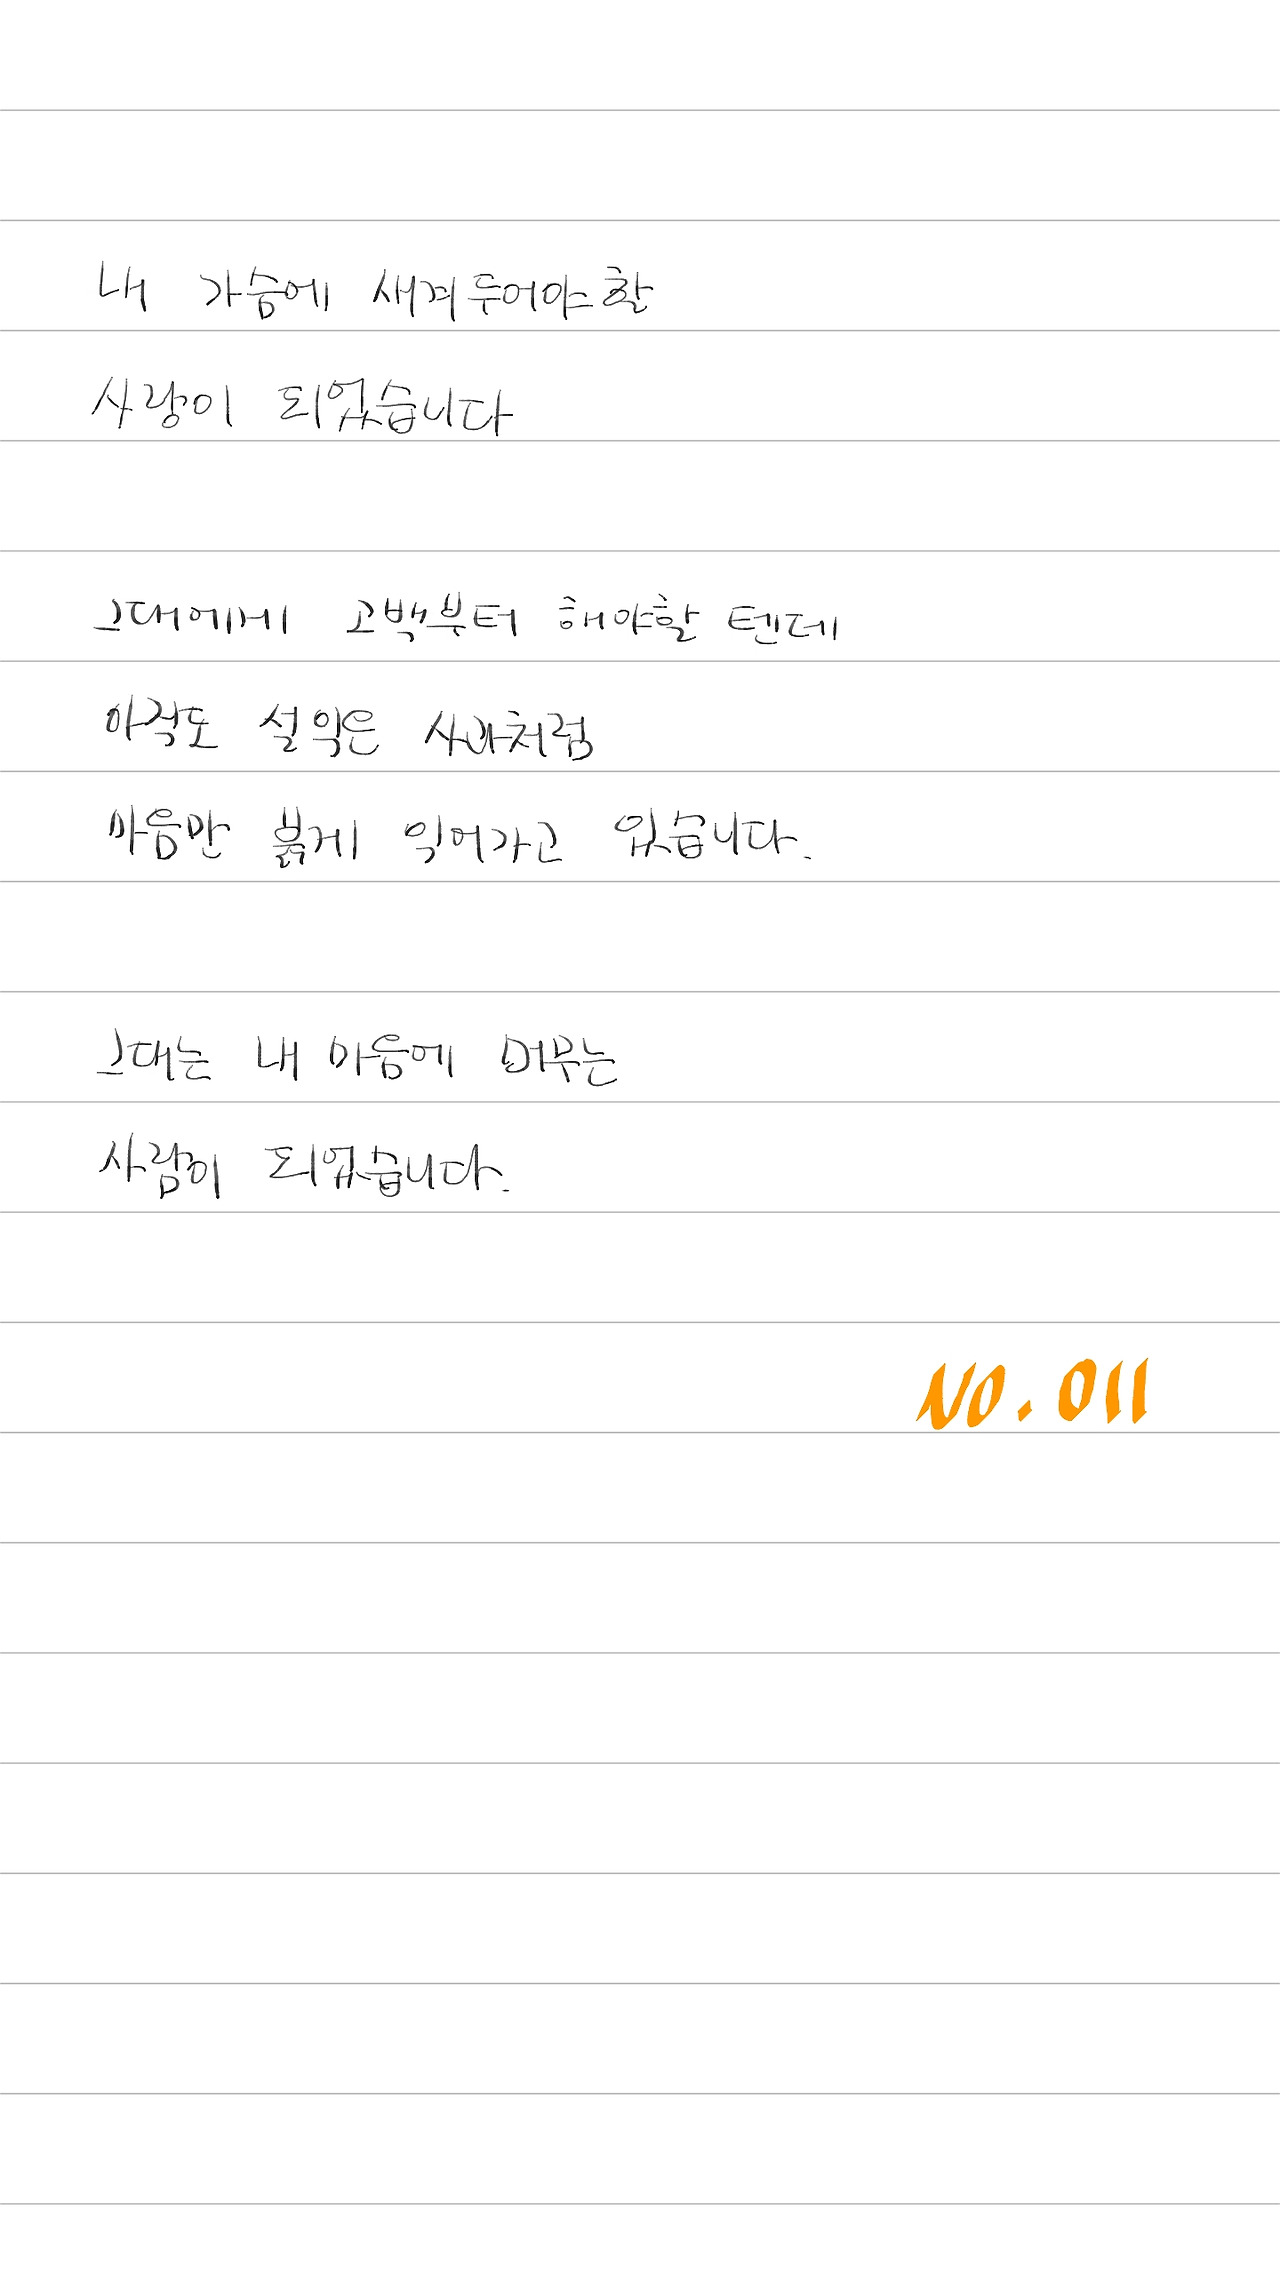 내 가슴에 새겨두어야 할
사랑이 되었습니다
그대에게 고백부터 해야할 텐데
아직도 설익은 사과처럼
마음만 붉게 익어가고 있습니다.
그대는 내 마음에 머무는
사람이 되었습니다.
NO. 011